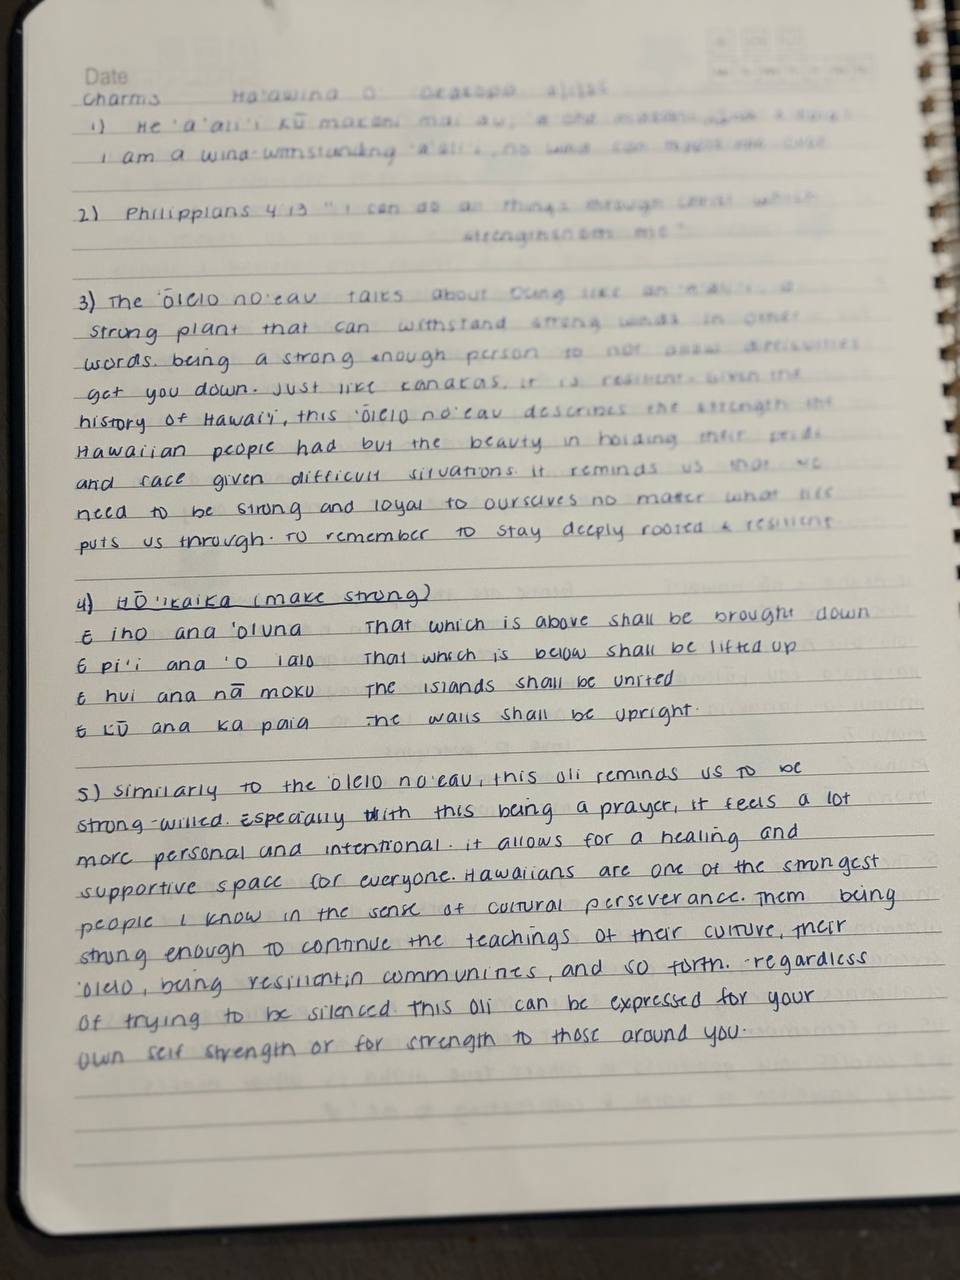 Date
Charms Ha'awina O
1) He 'a'ali'i kū makani mai au,
I am a wind-withstanding 'a'ali'i, no wind can
2) Philippians 4:13 "I can do all things through Christ which
strengtheneth me"
3) The 'ōlelo no'eau talks about being like an 'a'ali'i, a
strong plant that can withstand strong winds in other
words. being a strong enough person to not allow difficulties
get you down. Just like kanakas, it is resilient. Given the
history of Hawai'i, this 'ōlelo no'eau describes the strength the
Hawaiian people had but the beauty in holding their pride
and race given difficult situations. It reminds us that we
need to be strong and loyal to ourselves no matter what life
puts us through. To remember to stay deeply rooted & resilient
4) HŌ'ikaika (make strong)
E iho ana 'oluna That which is above shall be brought down
E pi'i ana 'o lalo That which is below shall be lifted up
E hui ana nā moku The islands shall be united
E kū ana ka paia The walls shall be upright.
5) Similarly to the 'ōlelo no'eau, this oli reminds us to be
strong-willed. Especially with this being a prayer, it feels a lot
more personal and intentional. it allows for a healing and
supportive space for everyone. Hawaiians are one of the strongest
people I know in the sense of cultural perseverance. Them being
strong enough to continue the teachings of their culture, their
'ōlelo, being resilient in communities, and so forth. regardless
of trying to be silenced. This oli can be expressed for your
own self strength or for strength to those around you.